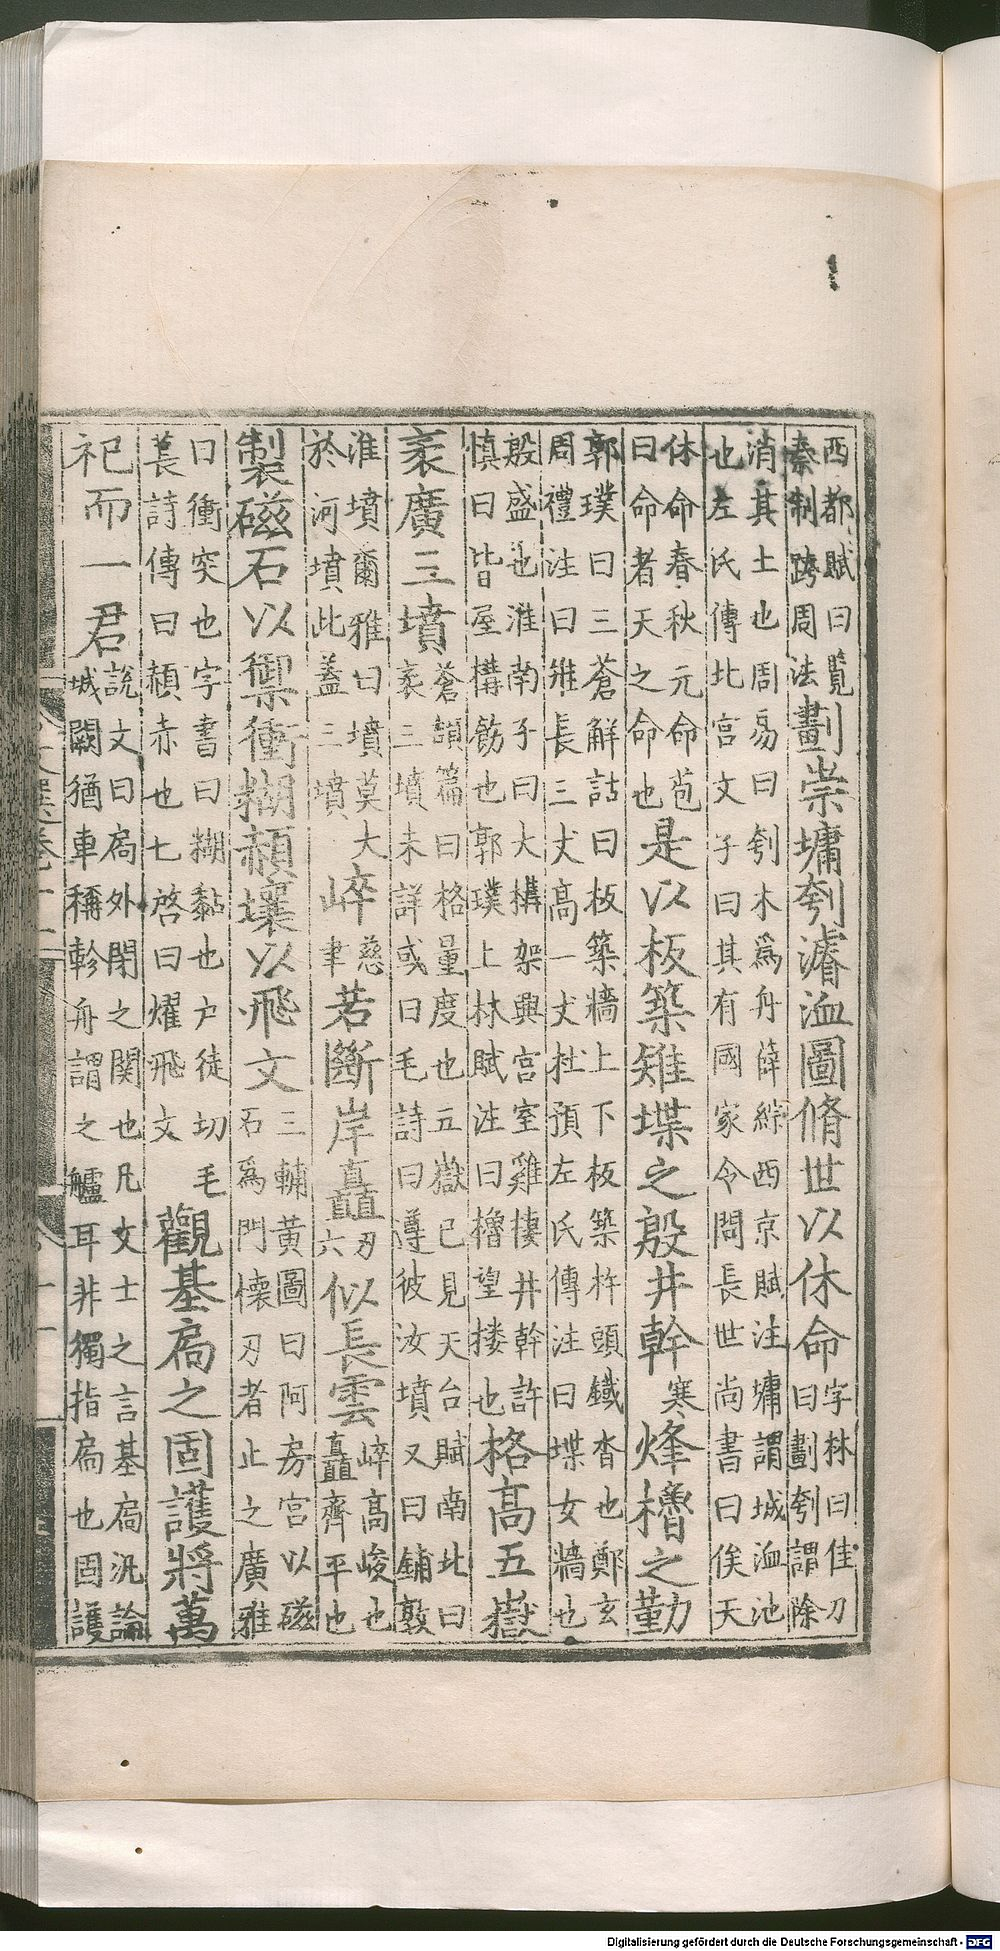 西都賦曰覽
秦制跨周法
劃崇墉刳濬洫圖脩世以休命
字林曰佳刀
曰劃刳謂除
消其土也周易曰刳木爲舟薛綜西京賦注墉謂城洫池
也左氏傳北宮文子曰其有國家令問長世尚書曰俟天
休命春秋元命苞
曰命者天之命也
是以板築雉堞之殷井幹
寒
烽櫓之勤
郭璞曰三蒼解詁曰板築牆上下板築杵頭鐵沓也鄭玄
周禮注曰雉長三丈高一丈杜預左氏傳注曰堞女牆也
殷盛也淮南子曰大構架興宮室雞棲井幹許
慎曰皆屋構飭也郭璞上林賦注曰櫓望摟也
格高五嶽
袤廣三墳
蒼頡篇曰格量度也五嶽已見天台賦南北曰
袤三墳未詳或曰毛詩曰遵彼汝墳又曰鋪敦
淮墳爾雅曰墳莫大
於河墳此蓋三墳
崒
慈
聿
若斷岸矗
刃
六
似長雲
崒高峻也
矗齊平也
製磁石以禦衝糊赬壤以飛文
三輔黃圖曰阿房宮以磁
石爲門懷刃者止之廣雅
曰衝突也字書曰糊黏也户徒切毛
萇詩傳曰赬赤也七啓曰燿飛文
觀基扃之固護將萬
祀而一君
說文曰扃外閉之関也凡文士之言基扃汎論
城闕猶車稱軫舟謂之艫耳非獨指扃也固護
Digitalisierung gefördert durch die Deutsche Forschungsgemeinschaft - DFG